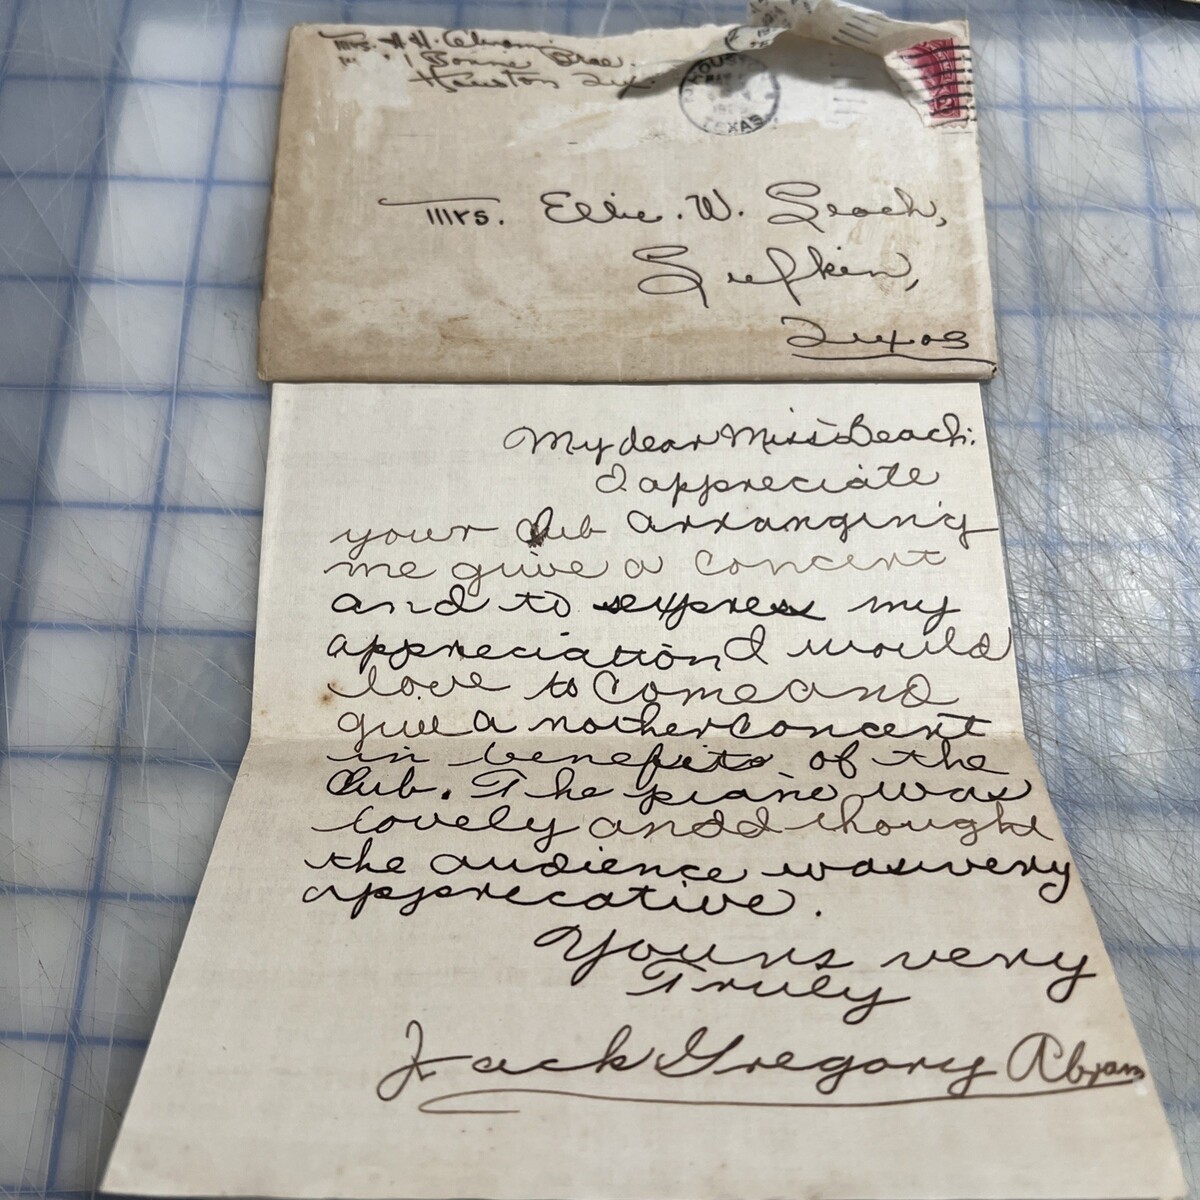 Mrs. H. H.
Bonnie Brae.
Houston Tex.
HOUSTON
TEXAS
Mrs. Ellie. W. Leach,
Lufkin,
Texas
My dear Miss Beach:
I appreciate
your Club arranging
me give a concert
and to express my
appreciation I would
love to come and
give a nother concert
in benefits of the
Club. The piano was
lovely and I thought
the audience was very
apprecative.
Yours very
Truly
Jack Gregory Abram